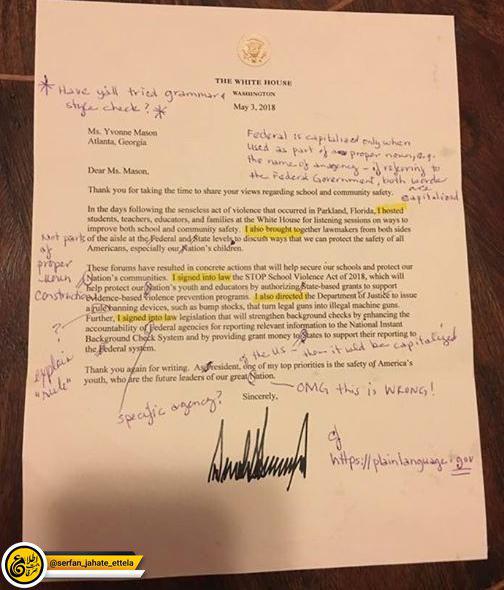 THE WHITE HOUSE
WASHINGTON
May 3, 2018
* Have y'all tried grammar &
style check? *
Ms. Yvonne Mason
Atlanta, Georgia
Federal is capitalized only when
used as part of a proper noun, e.g.
the name of an agency - if referring to
the Federal Government, both words
are
capitalized
Dear Ms. Mason,
Thank you for taking the time to share your views regarding school and community safety.
In the days following the senseless act of violence that occurred in Parkland, Florida, I hosted
students, teachers, educators, and families at the White House for listening sessions on ways to
improve both school and community safety. I also brought together lawmakers from both sides
of the aisle at the Federal and State levels to discuss ways that we can protect the safety of all
Americans, especially our Nation's children.
Not parts
of
proper
noun
construction
These forums have resulted in concrete actions that will help secure our schools and protect our
Nation's communities. I signed into law the STOP School Violence Act of 2018, which will
help protect our Nation's youth and educators by authorizing State-based grants to support
evidence-based violence prevention programs. I also directed the Department of Justice to issue
a rule banning devices, such as bump stocks, that turn legal guns into illegal machine guns.
Further, I signed into law legislation that will strengthen background checks by enhancing the
accountability of Federal agencies for reporting relevant information to the National Instant
Background Check System and by providing grant money to States to support their reporting to
the Federal system.
?
explain
"rule"
of the US - then it would be capitalized
Thank you again for writing. As President, one of my top priorities is the safety of America's
youth, who are the future leaders of our great Nation.
OMG this is WRONG!
specific agency?
Sincerely,
cf
https://plainlanguage.gov
@serfan_jahate_ettela